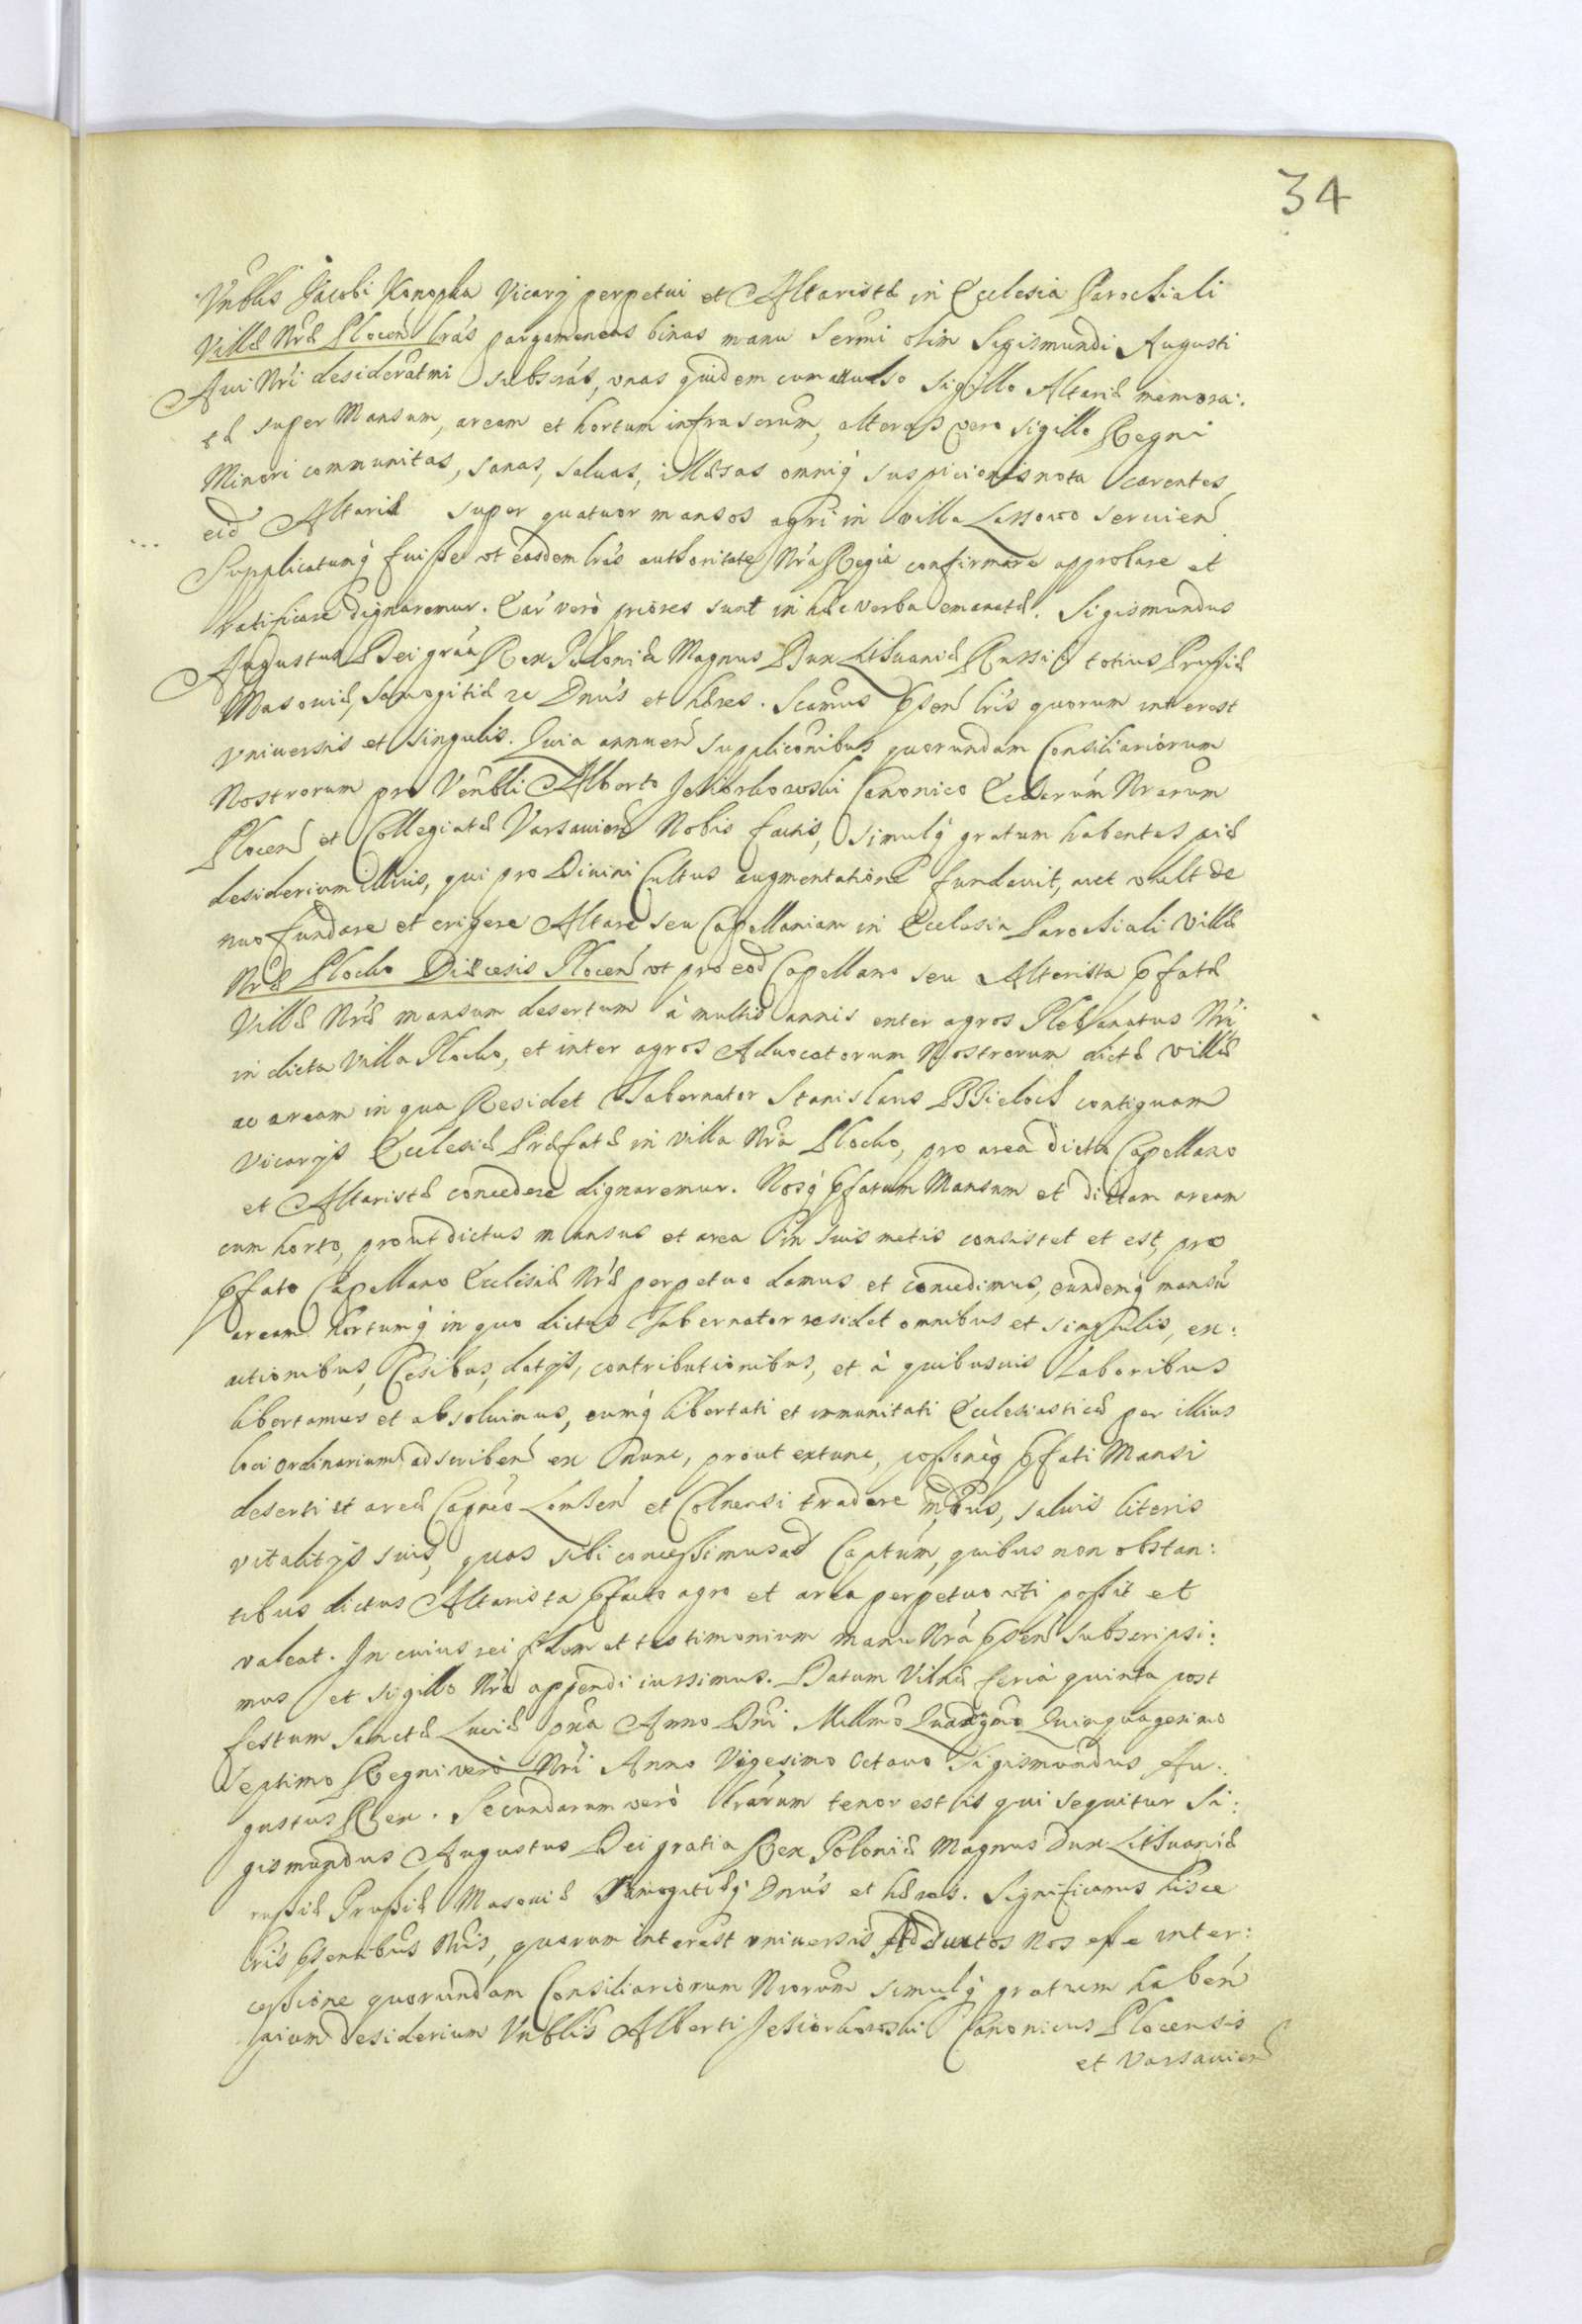 34
Vnblis Jacobi Konopka Vicarij perpetui et Altaristæ in Ecclesia Parochiali
Villæ Nræ Plocen lras pargameneas binas manu Sermi olim Sigismundi Augusti
Aui Nri desideratmi subsräs, vnas quidem cum auulso Sigillo Altariæ memora:
tæ super Mansum, aream et hortum infrascrum, alteras vero sigillo Regni
Minori communitas, sanas, saluas, illæsas omniq suspicionis nota carentes
eid Altariæ super quatuor mansos agri in villa Lassowo seruien
Supplicatumq fuisse vt easdem lras authoritate Nra Regia confirmare approbare et
ratificare dignaremur. Ear vero priores sunt in hæc verba emanatæ. Sigismundus
Augustus Dei gräa Rex Poloniæ Magnus Dux Lithuaniæ Russiæ totius Prussiæ
Masouiæ, Samogitiæ rc Dnus et hæres. Scamus psen lris quorum interest
vniuersis et singulis. Quia annuen suppliconibus quorundam Consiliariorum
Nostrorum pro Venbli Alberto Jeziorkowski Canonico Ecclarum Nrarum
Plocen et Collegiatæ Varsauien Nobis factis, simulq gratum habentes piæ
desiderium illius, qui pro Diuini Cultus augmentatione fundauit, aut vult de
nuo fundare et erigere Altare seu Capellaniam in Ecclesia Parochiali villæ
Nræ Plocko Diæcesis Plocen vt pro eod Capellano seu Altarista pfatæ
Villæ Nræ mansum desertum à multis annis inter agros Plebanatus Nri
in dicta Villa Plocko, et inter agros Aduocatorum Nostrorum dictæ villæ
ac aream in qua Residet Tabernator Stanislaus Bieloch contiguam
Vicarijs Ecclesiæ Præfatæ in villa Nra Plocko, pro area dicta Capellano
et Altaristæ concedere dignaremur. Nosq pfatum Mansum et dictam aream
cum horto, prout dictus mansus et area in suis metis consistet et est, pro
pfato Capellano Ecclesiæ Nræ perpetuo damus et concedimus, eundemq mansu
aream hortumq in quo dictus Tabernator residet omnibus et singulis, ex:
actionibus, Cesibus, datijs, contributionibus, et à quibusuis Laboribus
libertamus et absoluimus, eumq libertati et immunitati Ecclesiasticæ per illius
loci Ordinarium adscriben ex nunc, prout extunc, possoneq pfati Mansi
deserti et areæ Capneo Lomzen et Colnensi tradere mbus, saluis literis
vitalitijs suis, quas sibi concessimus ad Captum, quibus non obstan:
tibus dictus Altarista pfato agro et area perpetuo uti possit et
valeat. In cuius rei fidem et testimonium manu Nra psen subscripsi:
mus et sigillo Nro appendi iussimus. Datum Vilnæ feria quinta post
festum Sanctæ Luciæ pxa Anno Dni Millmo Quadgmo Quinquagesimo
Septimo Regni vero Nri Anno Vigesimo Octauo Sigismundus Au:
gustus Rex. Secundarum verò lrarum tenor est is qui sequitur Si:
gismundus Augustus Dei gratia Rex Poloniæ Magnus Dux Lithuaniæ
russiæ Prussiæ Masouiæ Samogitiæq Dnus et hæres. Significamus hisce
lris psentibus Nris, quorum interest vniuersis Adductos Nos esse inter:
cessione quorundam Consiliariorum Nrorum simulq gratum haben
pium desiderium Vnblis Alberti Jeziorkowski Canonicus Plocensis
et Varsauien